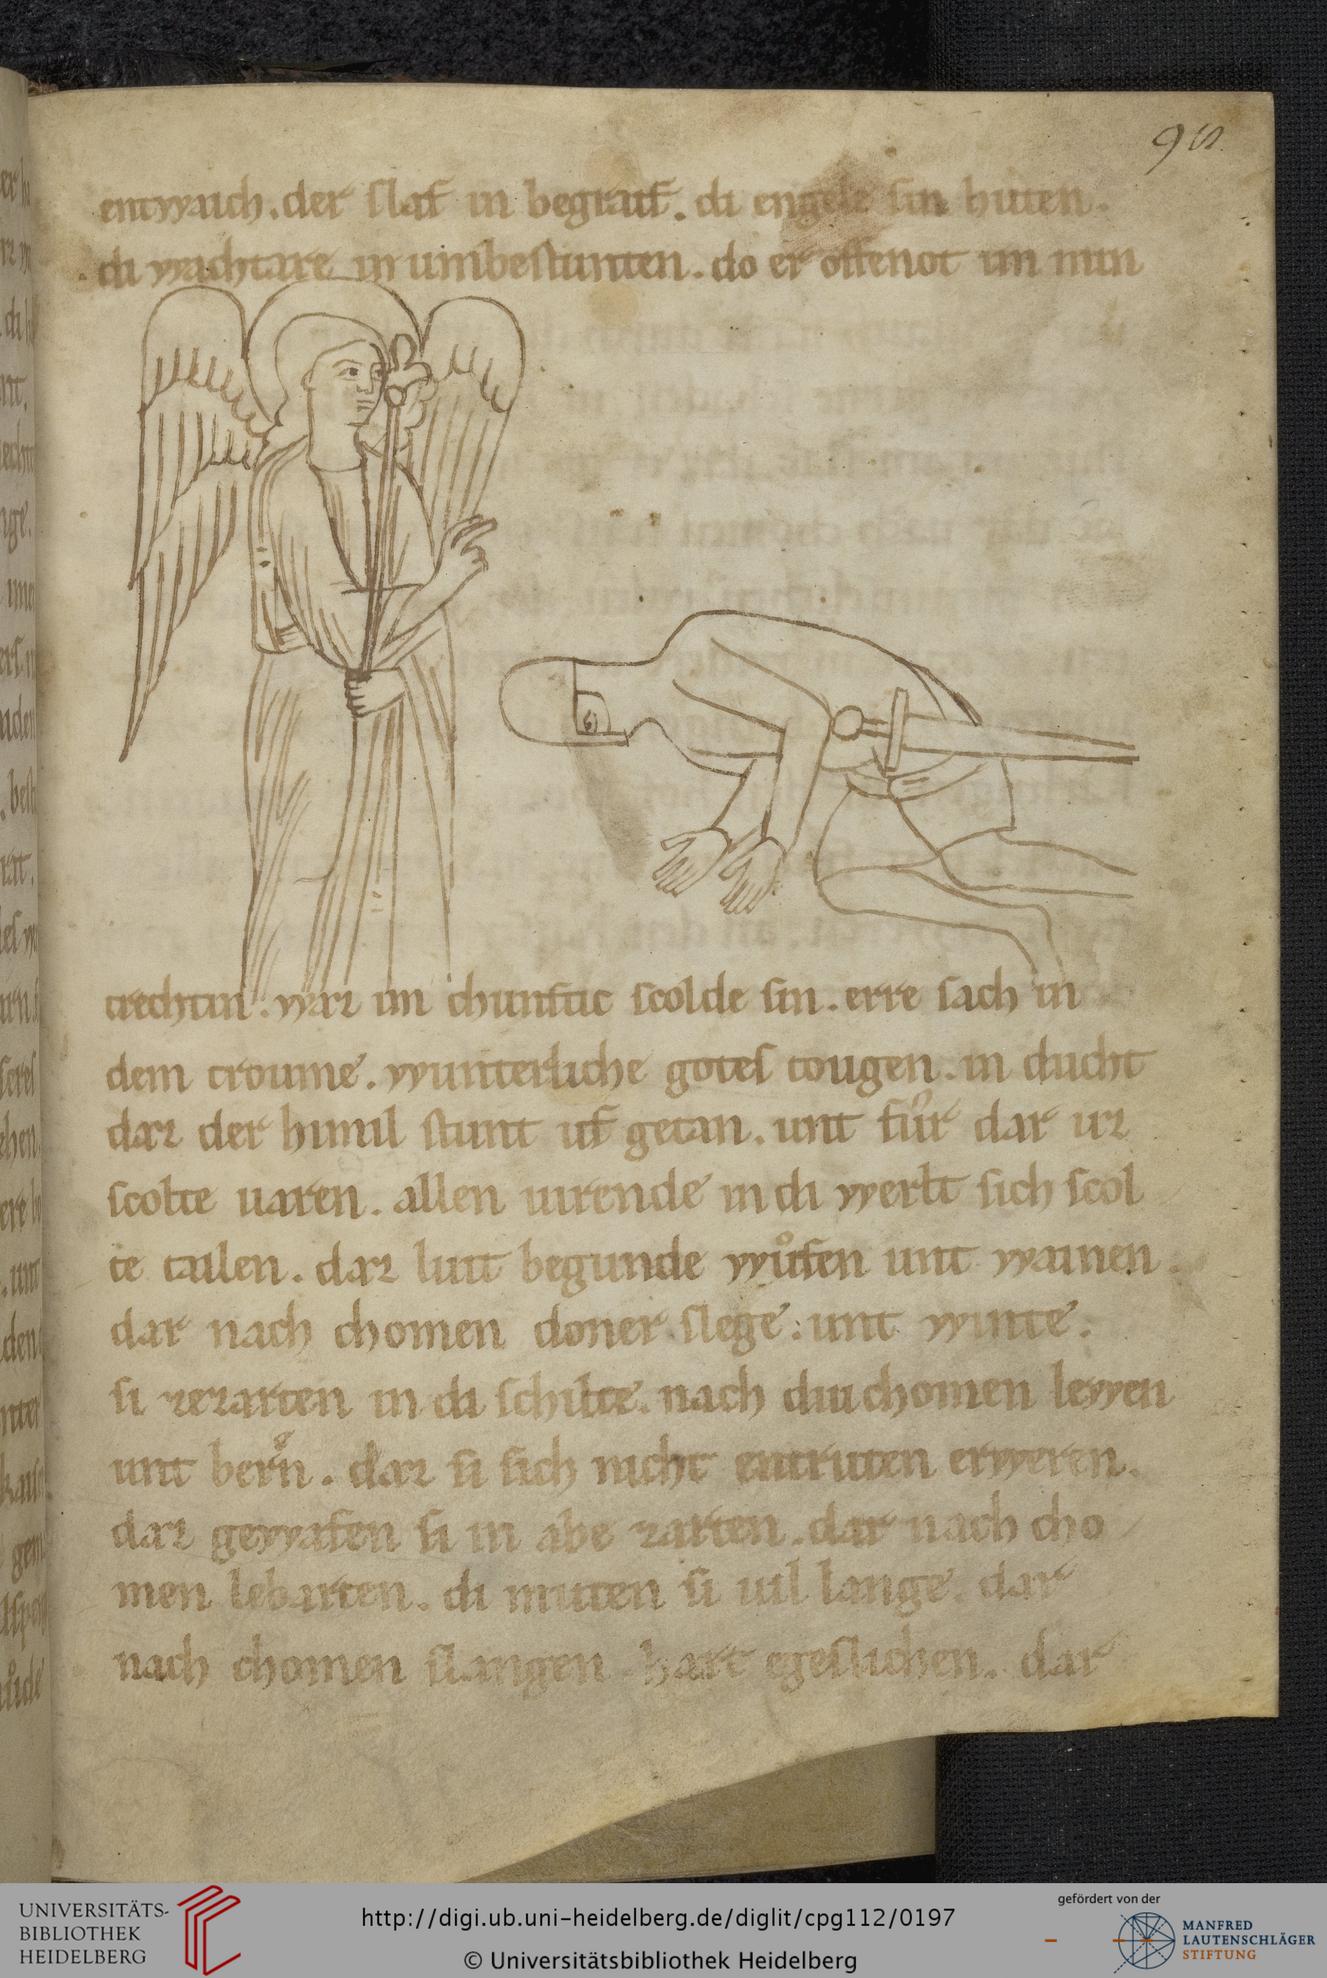 98
entwaich. der slaf in begraif. di engele sin huten.
di wachtare in umbestunten. do er offenot im min
trechtin. waz im chunftic scolde sin. erre sach in
dem troume. wunterliche gotes tougen. in ducht
daz der himil stunt uf getan. unt fuͦr dar uz
scolte uaren. allen uirende in di werlt sich scol
te tailen. daz liut begunde wuͦfen unt wainen.
dar nach chomen doner slege. unt winte.
si zezarten in di schilte. nach diu chomen lewen
unt bern. daz si sich nicht entruten erweren.
daz gewafen si in abe zarten. dar nach cho
men lebarten. di muten si uil lange. dar
nach chomen slangen hart egeslichen. dar
UNIVERSITÄTS-
BIBLIOTHEK
HEIDELBERG
http://digi.ub.uni-heidelberg.de/diglit/cpg112/0197
© Universitätsbibliothek Heidelberg
gefördert von der
MANFRED
LAUTENSCHLÄGER
STIFTUNG